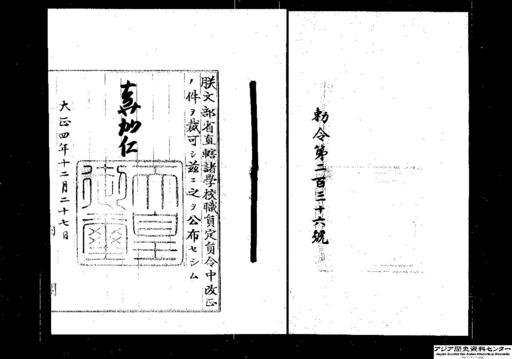 勅令第二百三十六號
朕文部省直轄諸學校職員定員令中改正
ノ件ヲ裁可シ茲ニ之ヲ公布セシム
嘉仁
天皇御璽
大正四年十二月二十七日
アジア歴史資料センター
Japan Center for Asian Historical Records